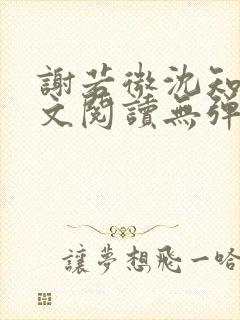 謝若微沈知
文閱讀無彈
讓夢想飛一哈